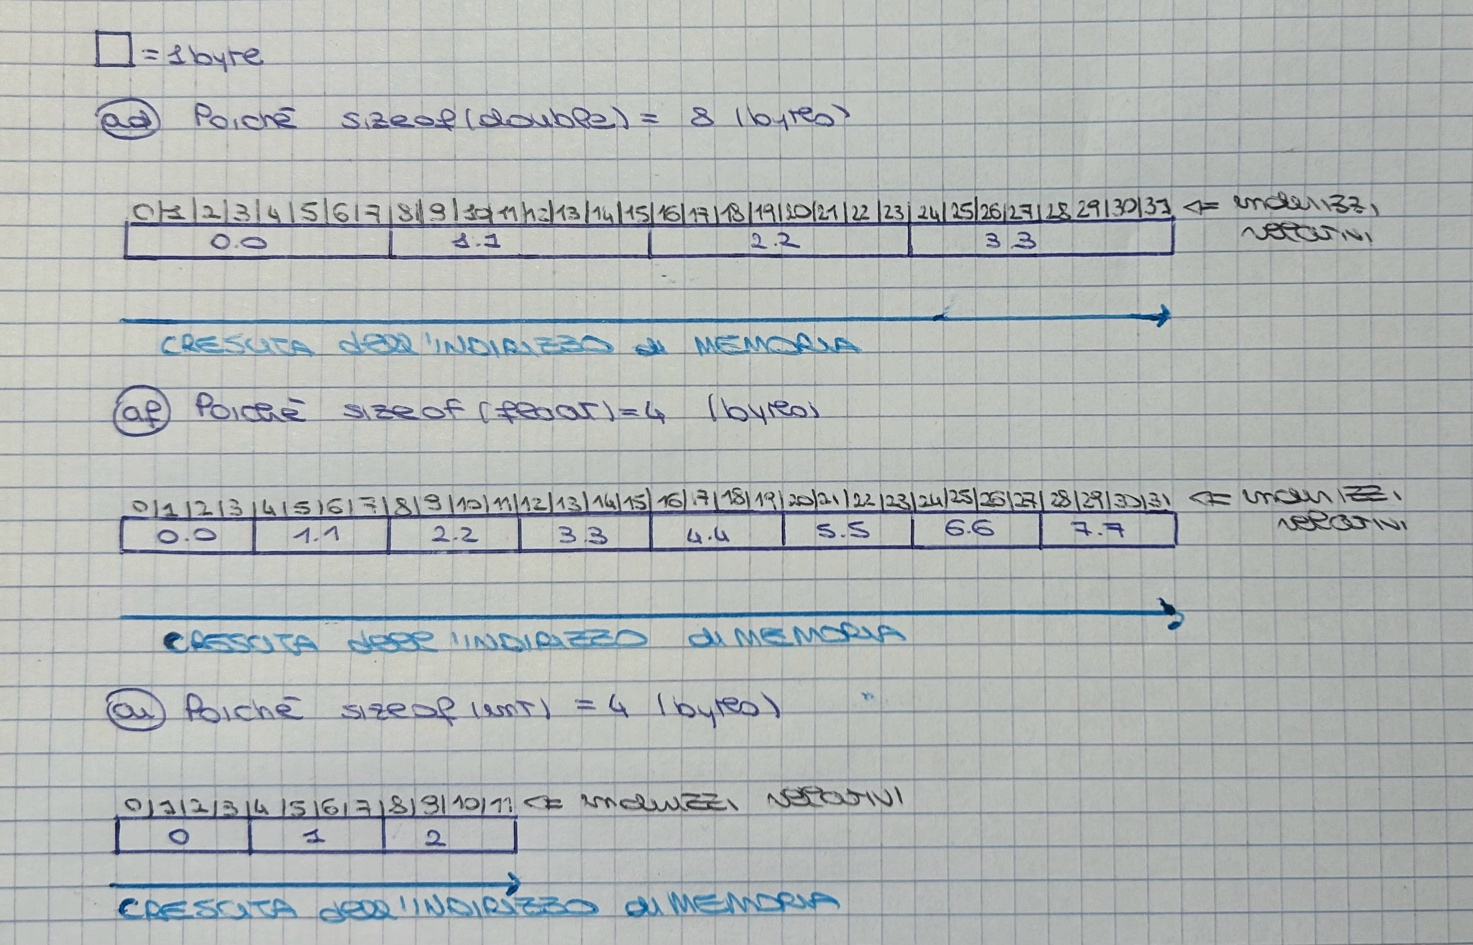 □ = 1 byte
ad Poiché sizeof(double) = 8 (bytes)
0|1|2|3|4|5|6|7|8|9|10|11|12|13|14|15|16|17|18|19|20|21|22|23|24|25|26|27|28 29|30|31 ⇐ indirizzi
relativi
0.0 1.1 2.2 3.3
CRESCITA dell'INDIRIZZO di MEMORIA
af Poiché sizeof(float)=4 (bytes)
0|1|2|3|4|5|6|7|8|9|10|11|12|13|14|15|16|17|18|19|20|21|22|23|24|25|26|27|28|29|30|31 ⇐ indirizzi
relativi
0.0 1.1 2.2 3.3 4.4 5.5 6.6 7.7
CRESCITA dell'INDIRIZZO di MEMORIA
ai Poiché sizeof(int) = 4 (bytes)
0|1|2|3|4|5|6|7|8|9|10|11 ⇐ indirizzi relativi
0 1 2
CRESCITA dell'INDIRIZZO di MEMORIA